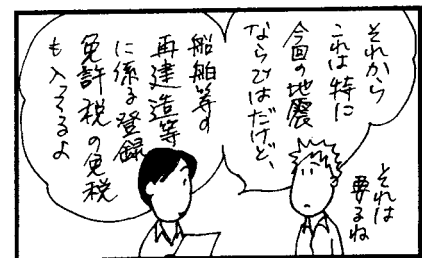 それから
これは特に
今回の地震
ならではだけど、
船舶等の
再建造等
に係る登録
免許税の免税
も入ってるよ
それは
要るね